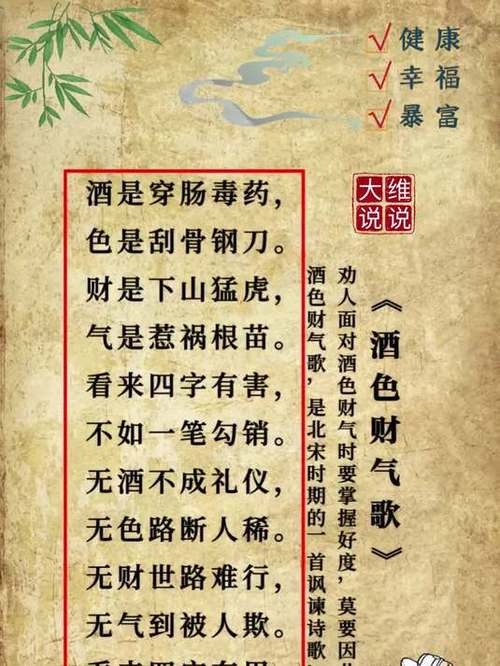 健康
幸福
暴富
大维
说说
《酒色财气歌》
劝人面对酒色财气时要掌握好度，莫要因
酒色财气歌，是北宋时期的一首讽谏诗歌
酒是穿肠毒药，
色是刮骨钢刀。
财是下山猛虎，
气是惹祸根苗。
看来四字有害，
不如一笔勾销。
无酒不成礼仪，
无色路断人稀。
无财世路难行，
无气到被人欺。